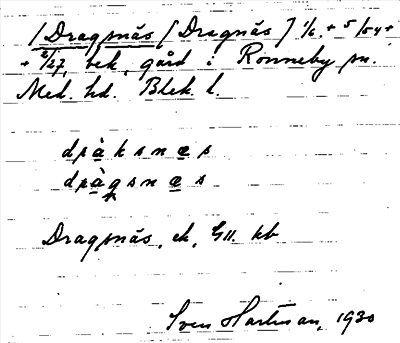 /Dragsnäs [Dragnäs] 1/6 + 5/54 +
+ 2/27, bek, gård i Ronneby sn.
Med. hd. Blek. l.
dràksnæs
dràgsnæs
Dragsnäs, ek, GII. kb
Sven Hartman, 1930